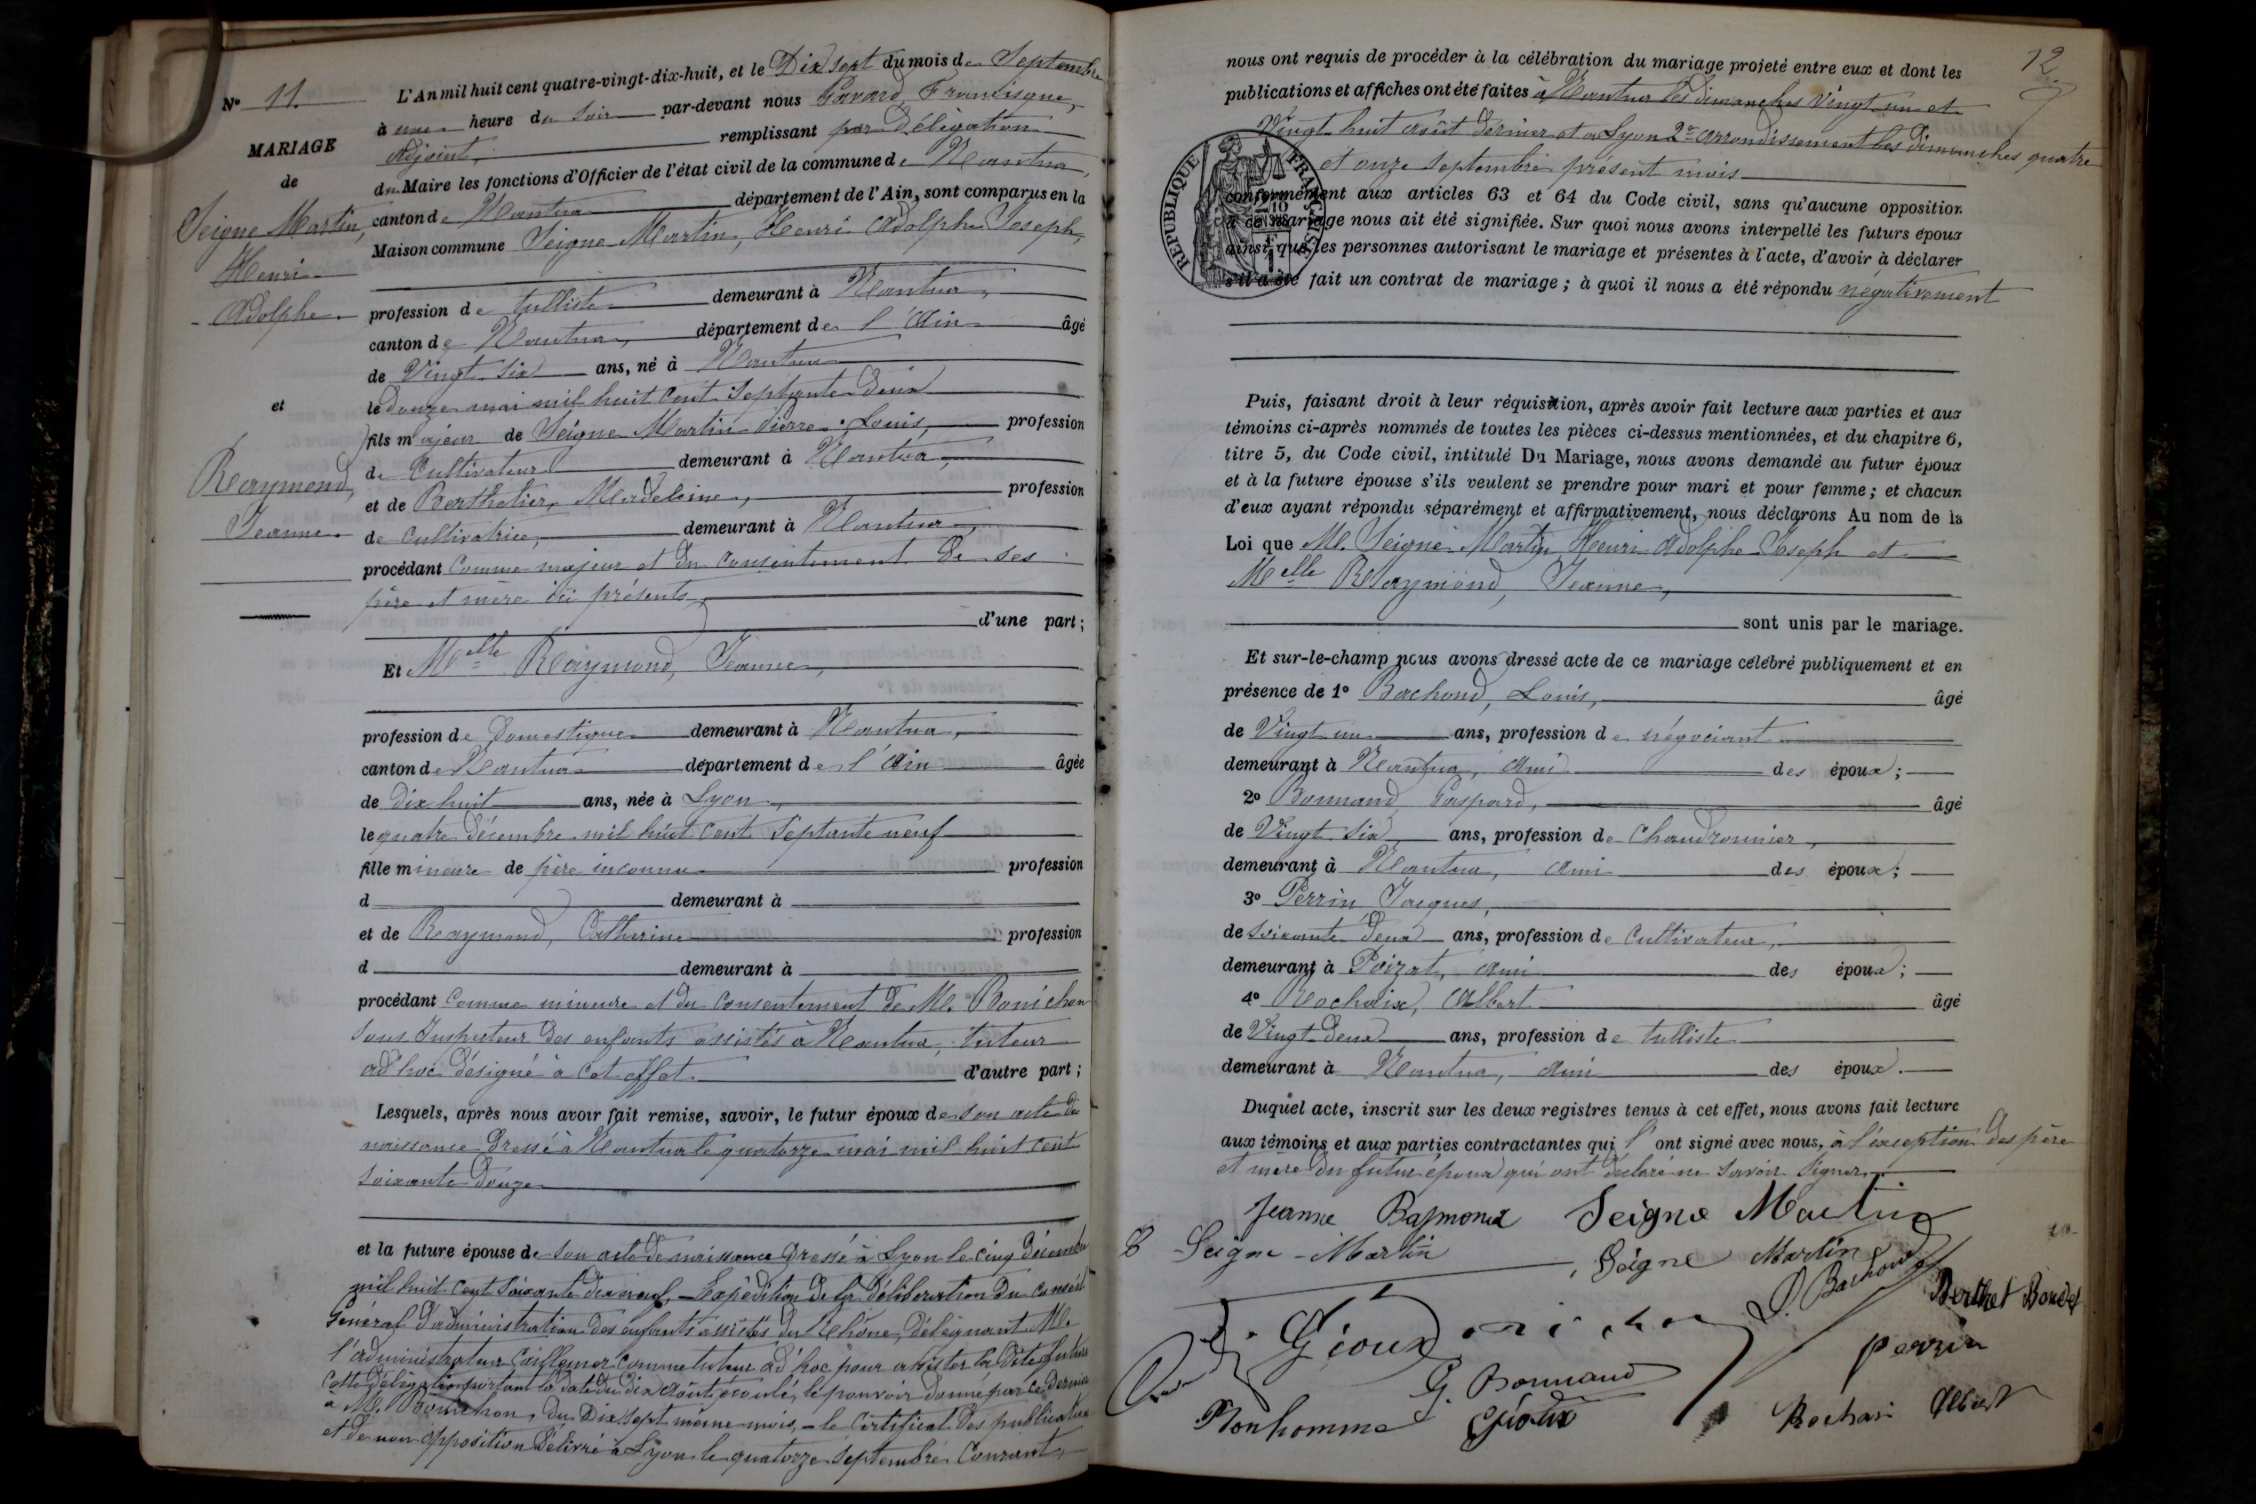 N° 11.
MARIAGE
de
Seigne Martin,
Henri
Adolphe
et
Raymond,
Jeanne
L'An mil huit cent quatre-vingt-dix-huit, et le Dix sept du mois de Septembre
à une heure du soir par-devant nous Gavard, Francisque,
Adjoint, remplissant par délégation
du Maire les fonctions d'Officier de l'état civil de la commune de Nantua,
canton de Nantua département de l'Ain, sont comparus en la
Maison commune Seigne Martin, Henri Adolphe Joseph,
profession de tulliste demeurant à Nantua,
canton de Nantua, département de l'Ain âgé
de Vingt six ans, né à Nantua
le douze mai mil huit cent septante deux
fils majeur de Seigne Martin Pierre Louis, profession
de Cultivateur demeurant à Nantua,
et de Berthelier, Madeleine, profession
de Cultivatrice, demeurant à Nantua,
procédant comme majeur et du consentement de ses
père et mère ici présents,
d'une part;
Et Melle Raymond, Jeanne,
profession de Domestique demeurant à Nantua,
canton de Nantua département de l'Ain âgée
de dix huit ans, née à Lyon,
le quatre décembre mil huit cent septante neuf
fille mineure de père inconnu profession
d demeurant à
et de Raymond, Catherine profession
d demeurant à
procédant comme mineure et du consentement de M. Bonichon
Sous Inspecteur des enfants assistés à Nantua, tuteur
ad'hoc désigné à cet effet d'autre part;
Lesquels, après nous avoir fait remise, savoir, le futur époux de son acte de
naissance dressé à Nantua le quatorze mai mil huit cent
soixante douze
et la future épouse de son acte de naissance dressé à Lyon le cinq décembre
mil huit cent soixante dix neuf, Expédition de la délibération du Conseil
Général d'administration des enfants assistés du Rhône, déléguant M.
l'administrateur Caillemer comme tuteur ad'hoc pour assister la dite future
cette délégation portant la date du dix août écoulé, le pouvoir donné par ce dernier
à M. Bonichon, du Dix sept même mois, le certificat des publications
et de non opposition délivré à Lyon le quatorze septembre courant,
12
nous ont requis de procéder à la célébration du mariage projeté entre eux et dont les
publications et affiches ont été faites à Nantua les dimanches vingt un et
Vingt huit août dernier et à Lyon 2e arrondissement les dimanches quatre
et onze septembre présent mois
conformément aux articles 63 et 64 du Code civil, sans qu'aucune opposition
à ce mariage nous ait été signifiée. Sur quoi nous avons interpellé les futurs époux
ainsi que les personnes autorisant le mariage et présentes à l'acte, d'avoir à déclarer
s'il a été fait un contrat de mariage; à quoi il nous a été répondu négativement
RÉPUBLIQUE FRANÇAISE
Puis, faisant droit à leur réquisition, après avoir fait lecture aux parties et aux
témoins ci-après nommés de toutes les pièces ci-dessus mentionnées, et du chapitre 6,
titre 5, du Code civil, intitulé Du Mariage, nous avons demandé au futur époux
et à la future épouse s'ils veulent se prendre pour mari et pour femme; et chacun
d'eux ayant répondu séparément et affirmativement, nous déclarons Au nom de la
Loi que M. Seigne Martin, Henri Adolphe Joseph et
Melle Raymond, Jeanne,
sont unis par le mariage.
Et sur-le-champ nous avons dressé acte de ce mariage célébré publiquement et en
présence de 1° Bachond, Louis, âgé
de Vingt un ans, profession de négociant
demeurant à Nantua, ami des époux;
2° Bonnand, Gaspard, âgé
de Vingt six ans, profession de Chaudronnier,
demeurant à Nantua, ami des époux;
3° Perrin Jacques,
de soixante deux ans, profession de Cultivateur,
demeurant à Poizat, ami des époux;
4° Rochaix, Albert âgé
de Vingt deux ans, profession de tulliste
demeurant à Nantua, ami des époux.
Duquel acte, inscrit sur les deux registres tenus à cet effet, nous avons fait lecture
aux témoins et aux parties contractantes qui l'ont signé avec nous, à l'exception des père
et mère du futur époux qui ont déclaré ne savoir signer.
Jeanne Raymond Seigne Martin
Seigne-Martin Seigne Martin
L. Bachond Berthet Bondet
Gioux Bonichon
perrin
G. Bonnand
Monhomme Gioux Rochaix Albert